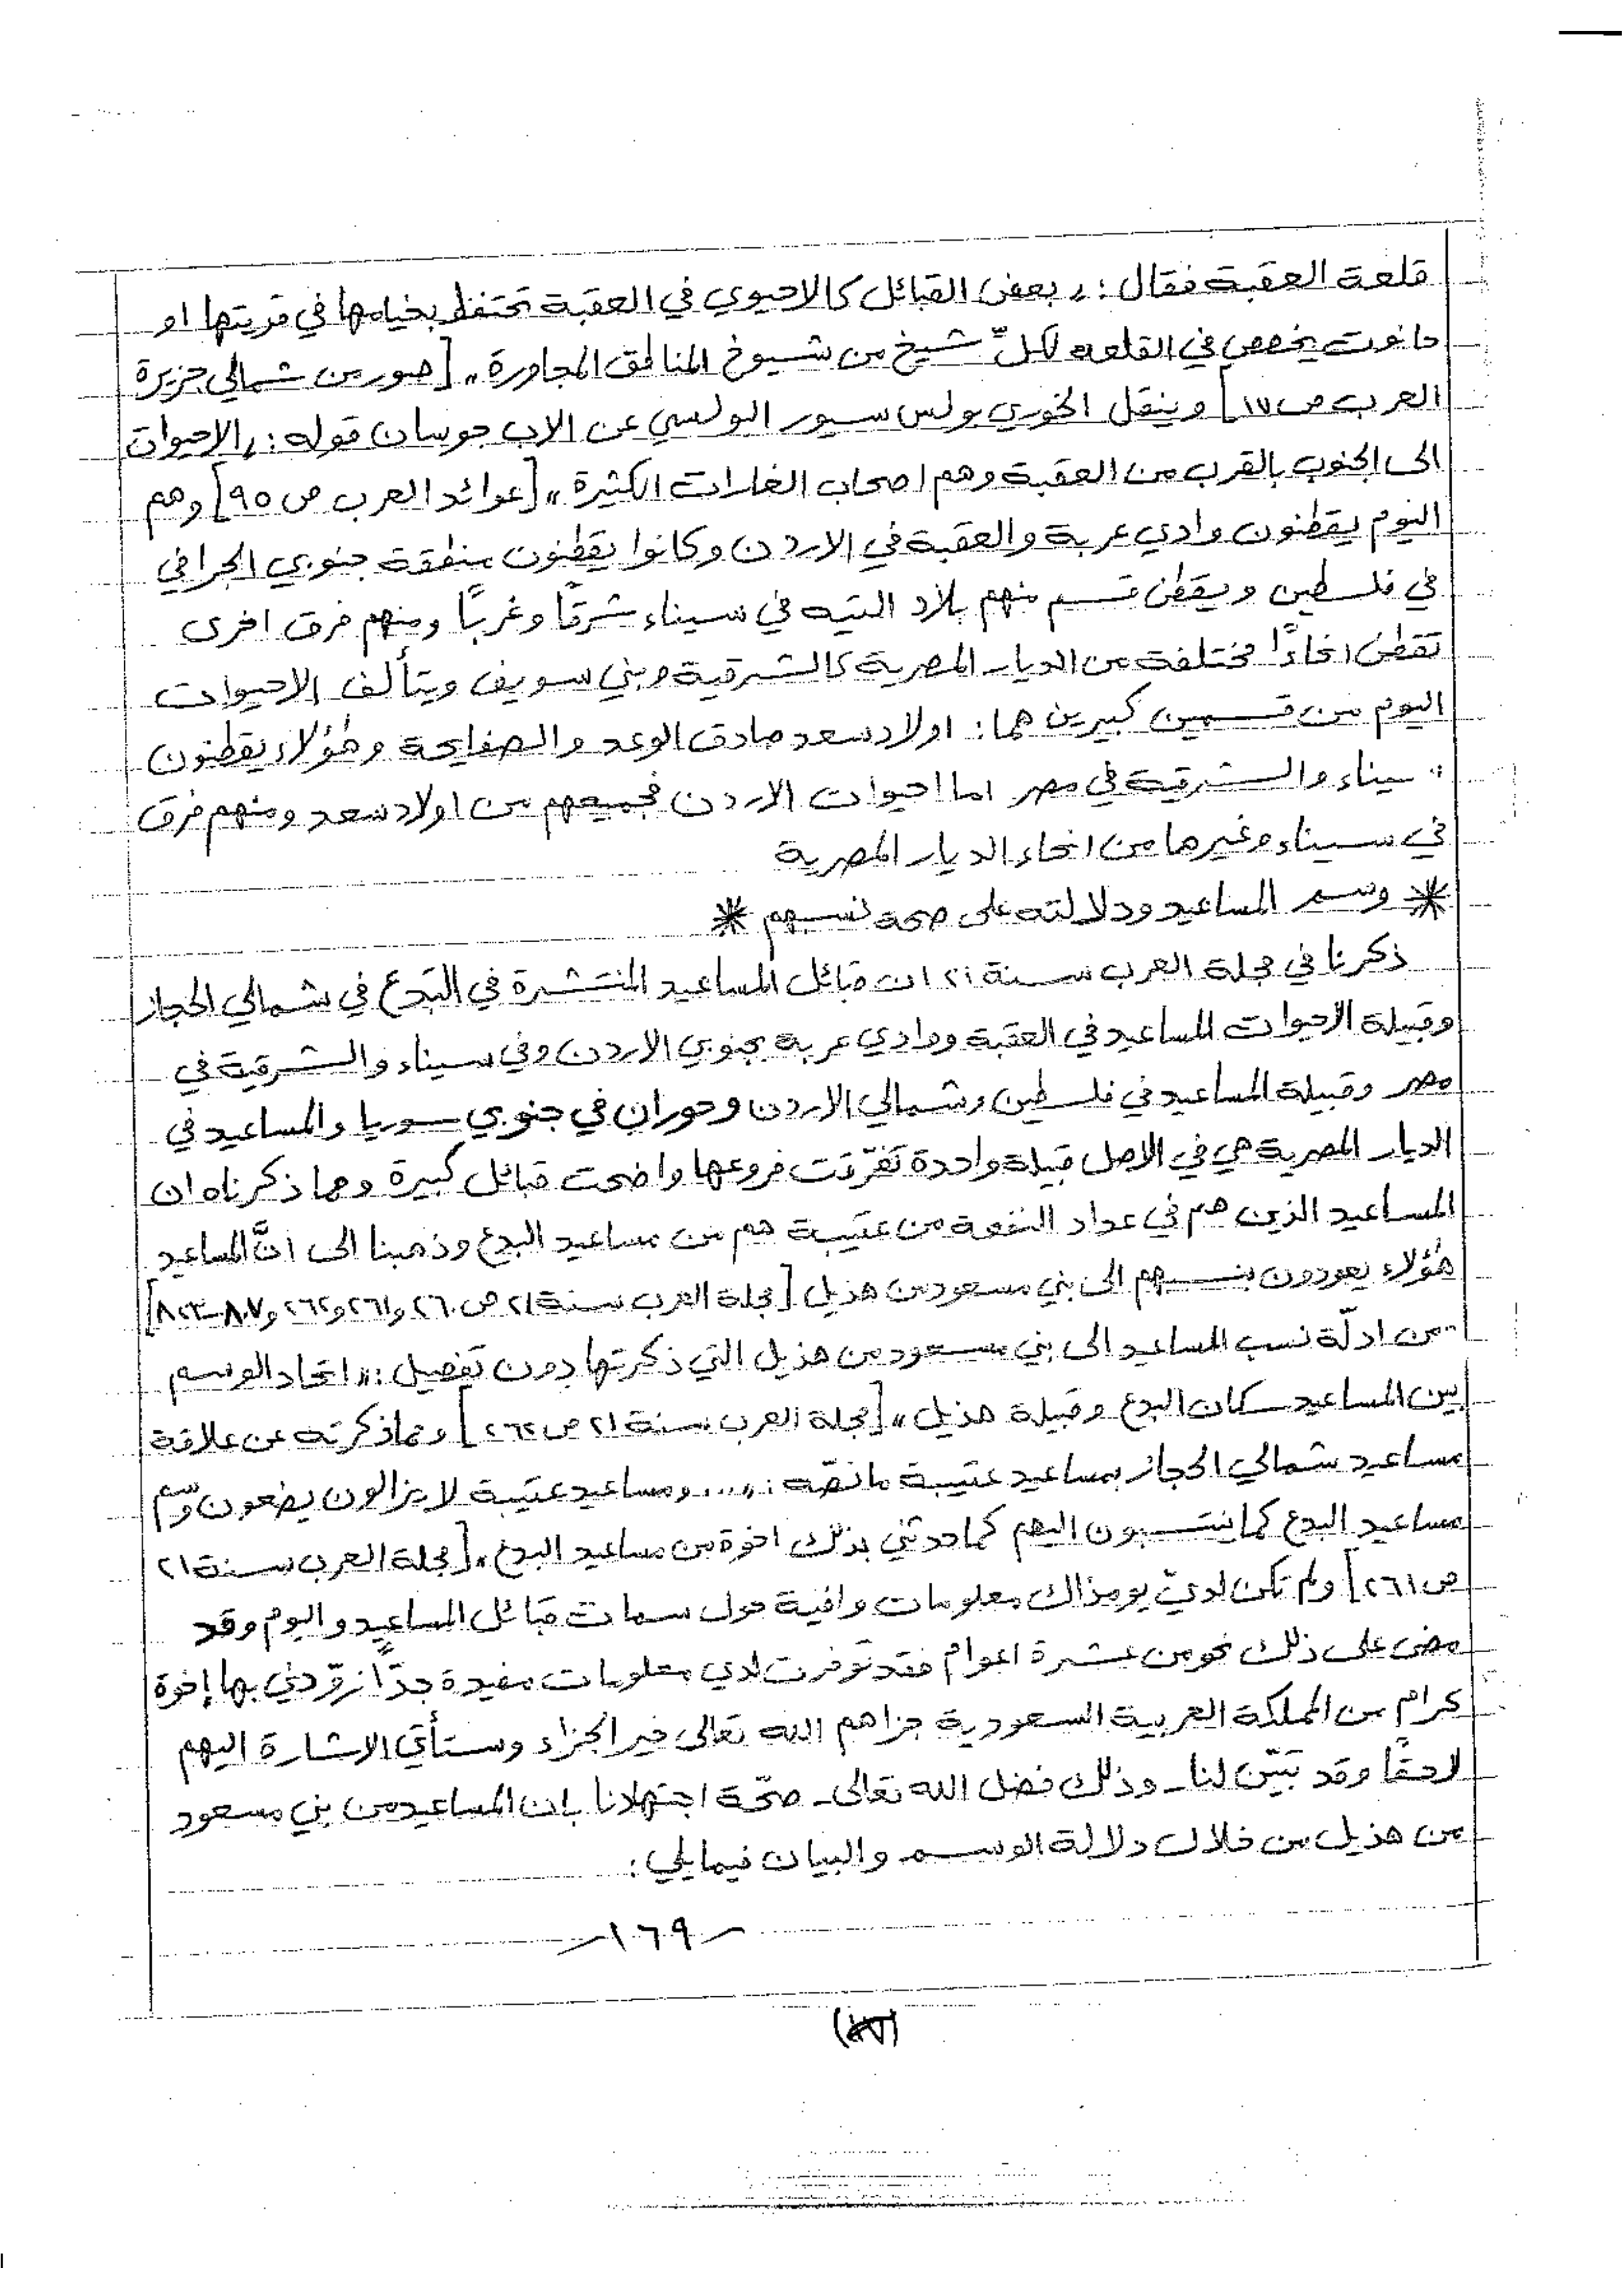 قلعة العقبة فقال: «بعض القبائل كالاحيوي في العقبة تحتفظ بخيامها في قريتها او
حانوت يخصص في القلعه لكلّ شيخ من شيوخ المناطق المجاورة» [صور من شمالي جزيرة
العرب ص ١٧] وينقل الخوري بولس سيور البولسي عن الاب جوسان قوله: «الاحيوات
الى الجنوب بالقرب من العقبة وهم اصحاب الغارات الكثيرة» [عوائد العرب ص ٩٥] وهم
اليوم يقطنون وادي عربة والعقبة في الاردن وكانوا يقطنون منطقة جنوبي الجرافي
في فلسطين ويقطن قسم منهم بلاد التيه في سيناء شرقًا وغربًا ومنهم فرق اخرى
تقطن انحاءً مختلفة من الديار المصرية كالشرقية وبني سويف ويتألف الاحيوات
اليوم من قسمين كبيرين هما: اولاد سعد صادق الوعد والصفايحة وهؤلاء يقطنون
سيناء والشرقية في مصر اما احيوات الاردن فجميعهم من اولاد سعد ومنهم فرق
في سيناء وغيرها من انحاء الديار المصرية
* وسم المساعيد ودلالته على صحة نسبهم *
ذكرنا في مجلة العرب سنة ٢١ ان قبائل المساعيد المنتشرة في البَدع في شمالي الحجاز
وقبيلة الاحيوات المساعيد في العقبة ووادي عربة بجنوبي الاردن وفي سيناء والشرقية في
مصر وقبيلة المساعيد في فلسطين وشمالي الاردن وحوران في جنوبي سوريا والمساعيد في
الديار المصرية هي في الاصل قبيلة واحدة تفرّقت فروعها واضحت قبائل كبيرة ومما ذكرناه ان
المساعيد الذين هم في عداد النفعة من عتيبة هم من مساعيد البدع وذهبنا الى انَّ المساعيد
هؤلاء يعودون بنسبهم الى بني مسعود من هذيل [مجلة العرب سنة ٢١ ص ٢٦٠ و٢٦١ و٢٦٢ و٨٠٧-٨٢٣]
من ادلّة نسب المساعيد الى بني مسعود من هذيل التي ذكرتها دون تفصيل: «اتحاد الوسم
بين المساعيد سكان البدع وقبيلة هذيل» [مجلة العرب سنة ٢١ ص ٢٦٢] ومما ذكرته عن علاقة
مساعيد شمالي الحجاز بمساعيد عتيبة ما نصّه: «... ومساعيد عتيبة لا يزالون يضعون وسم
مساعيد البدع كما ينتسبون اليهم كما حدثني بذلك اخوة من مساعيد البدع» [مجلة العرب سنة ٢١
ص ٢٦١] ولم تكن لديّ يومذاك معلومات وافية حول سمات قبائل المساعيد واليوم وقد
مضى على ذلك نحو من عشرة اعوام فقد توفرت لدي معلومات مفيدة جدًّا زوّدني بها إخوة
كرام من المملكة العربية السعودية جزاهم الله تعالى خير الجزاء وستأتي الاشارة اليهم
لاحقًا وقد تبيّن لنا - وذلك فضل الله تعالى - صحّة اجتهادنا بان المساعيد من بني مسعود
من هذيل من خلال دلالة الوسم والبيان فيما يلي:
-١٦٩-